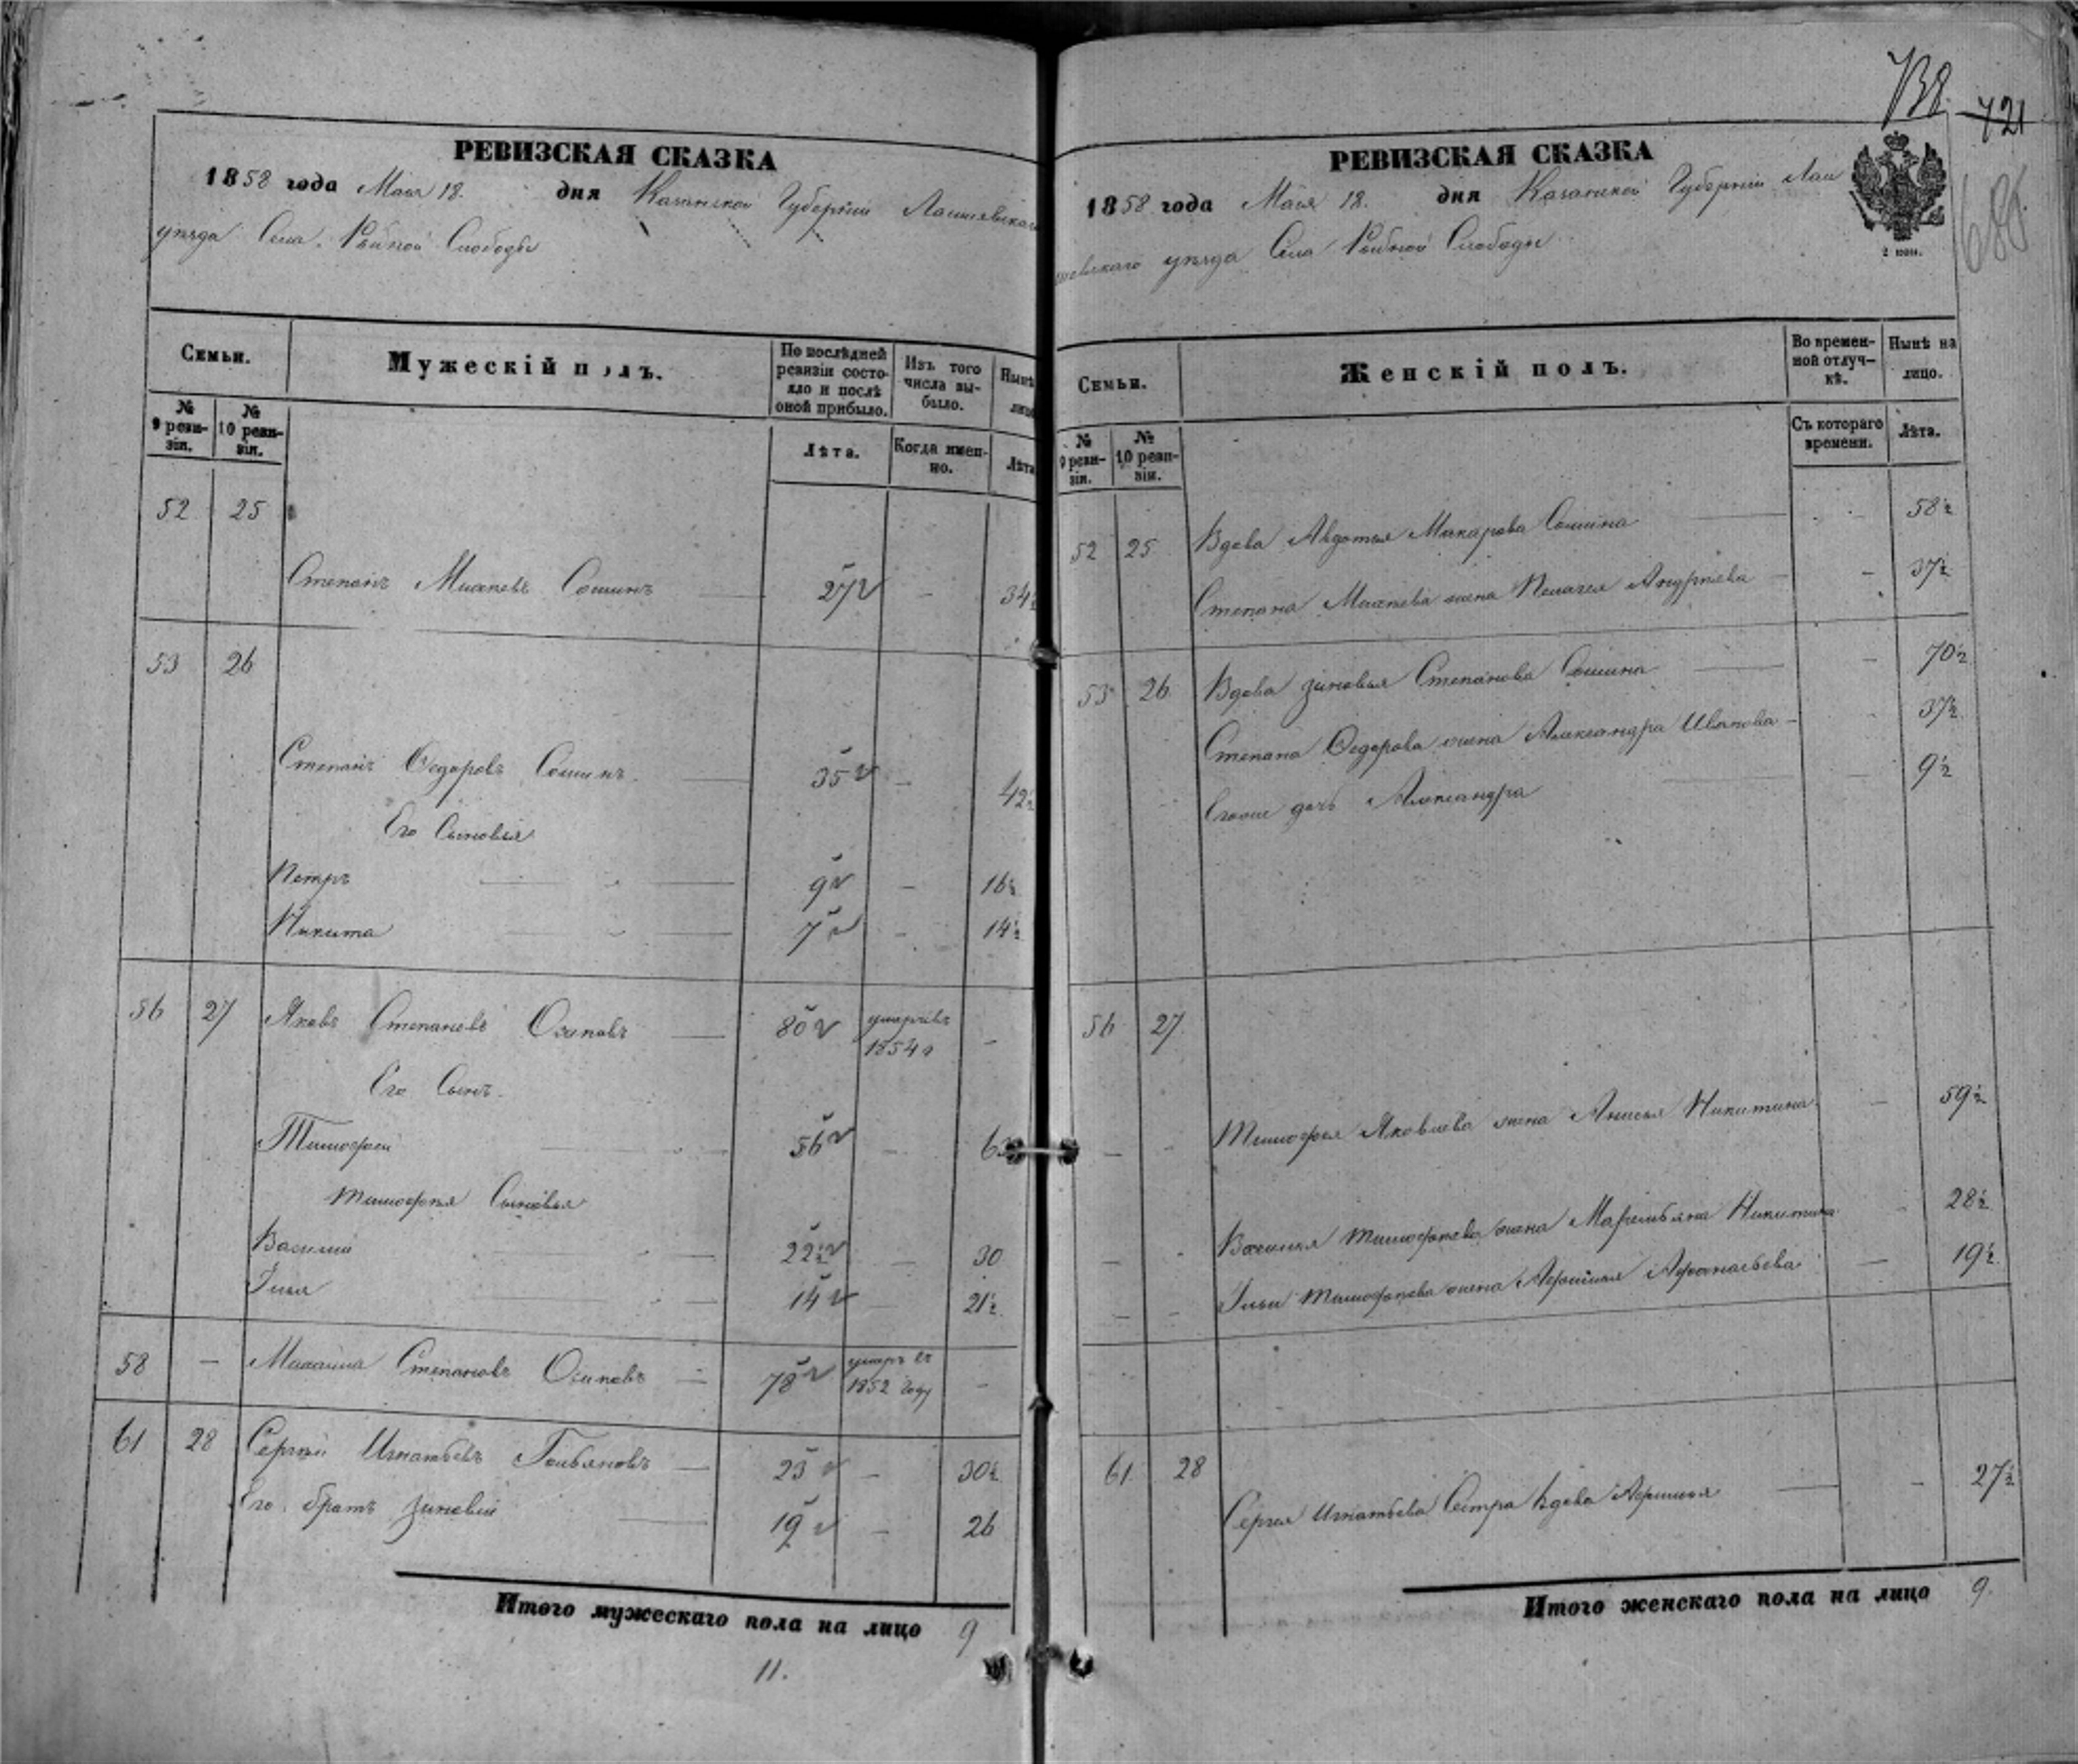 РЕВИЗСКАЯ СКАЗКА
1858 года Мая 18. дня Казанской Губернии Лаишевскаго
уезда Села Рыбной Слободы
Семьи.
Мужескій полъ.
По послѣдней ревизіи состояло и послѣ оной прибыло.
Изъ того числа выбыло.
Нынѣ
лицо
№ 9 ревизіи.
№ 10 ревизіи.
Лѣта.
Когда именно.
Лѣта
52 25
Степанъ Михѣевъ Сошинъ 27 - 34½
53 26
Степанъ Ѳедоровъ Сошинъ 35 - 42½
Его Сыновья
Петръ 9 - 16½
Никита 7 - 14½
56 27 Яковъ Степановъ Осиповъ 80 умеръ въ 1854 г -
Его Сынъ.
Тимофей 56 - 63
Тимофѣя Сыновья
Василий 22½ - 30
Илья 14 - 21½
58 - Степановъ Осиповъ 78 умеръ въ 1852 году -
61 28 Сергѣй Игнатьевъ 23 - 30½
Его братъ Зиновий 19 - 26
Итого мужескаго пола на лицо 9
11.
738
721
685.
РЕВИЗСКАЯ СКАЗКА
1858 года Мая 18. дня Казанской Губернии Лаи
шевскаго уезда Села Рыбной Слободы
2 коп.
Семьи.
Женскій полъ.
Во временной отлучкѣ.
Нынѣ на лицо.
№ 9 ревизіи.
№ 10 ревизіи.
Съ котораго времени.
Лѣта.
52 25 Вдова Авдотья Макарова Сошина 58½
Степана Михѣева жена Пелагея Андрѣева - 37½
53 26 Вдова Зиновья Степанова Сошина - 70½
Степана Ѳедорова жена Александра Иванова - 37½
Егоже дочь Александра - 9½
56 27
Тимофея Яковлева жена Анисья Никитина - 59½
Василья Тимофѣева жена Никитина 28½
Ильи Тимофѣева жена Афимья Афонасьева - 19½
61 28
Сергея Игнатьева Сестра вдова Афимья - 27½
Итого женскаго пола на лицо 9.